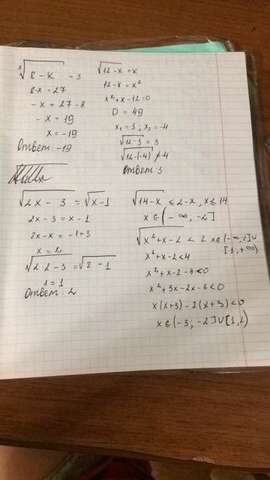 ³√8-x = 3
8-x = 27
-x = 27-8
-x = 19
x = -19
Ответ: -19
√12-x = x
12-x = x²
x²+x-12=0
D = 49
x₁ = 3, x₂ = -4
√12-3 = 3
√12-(-4) ≠ 4
Ответ: 3
√2x-3 = √x-1
2x-3 = x-1
2x-x = -1+3
x = 2
√2·2-3 = √2-1
1 = 1
Ответ: 2
√14-x ≤ 2-x, x ≤ 14
x ∈ (-∞, -2]
√x²+x-2 < 2 x ∈ (-∞, -2] ∪ [1, +∞)
x²+x-2<4
x²+x-2-4<0
x²+3x-2x-6<0
x(x+3)-2(x+3)<0
x ∈ (-3; -2] ∪ [1, 2)